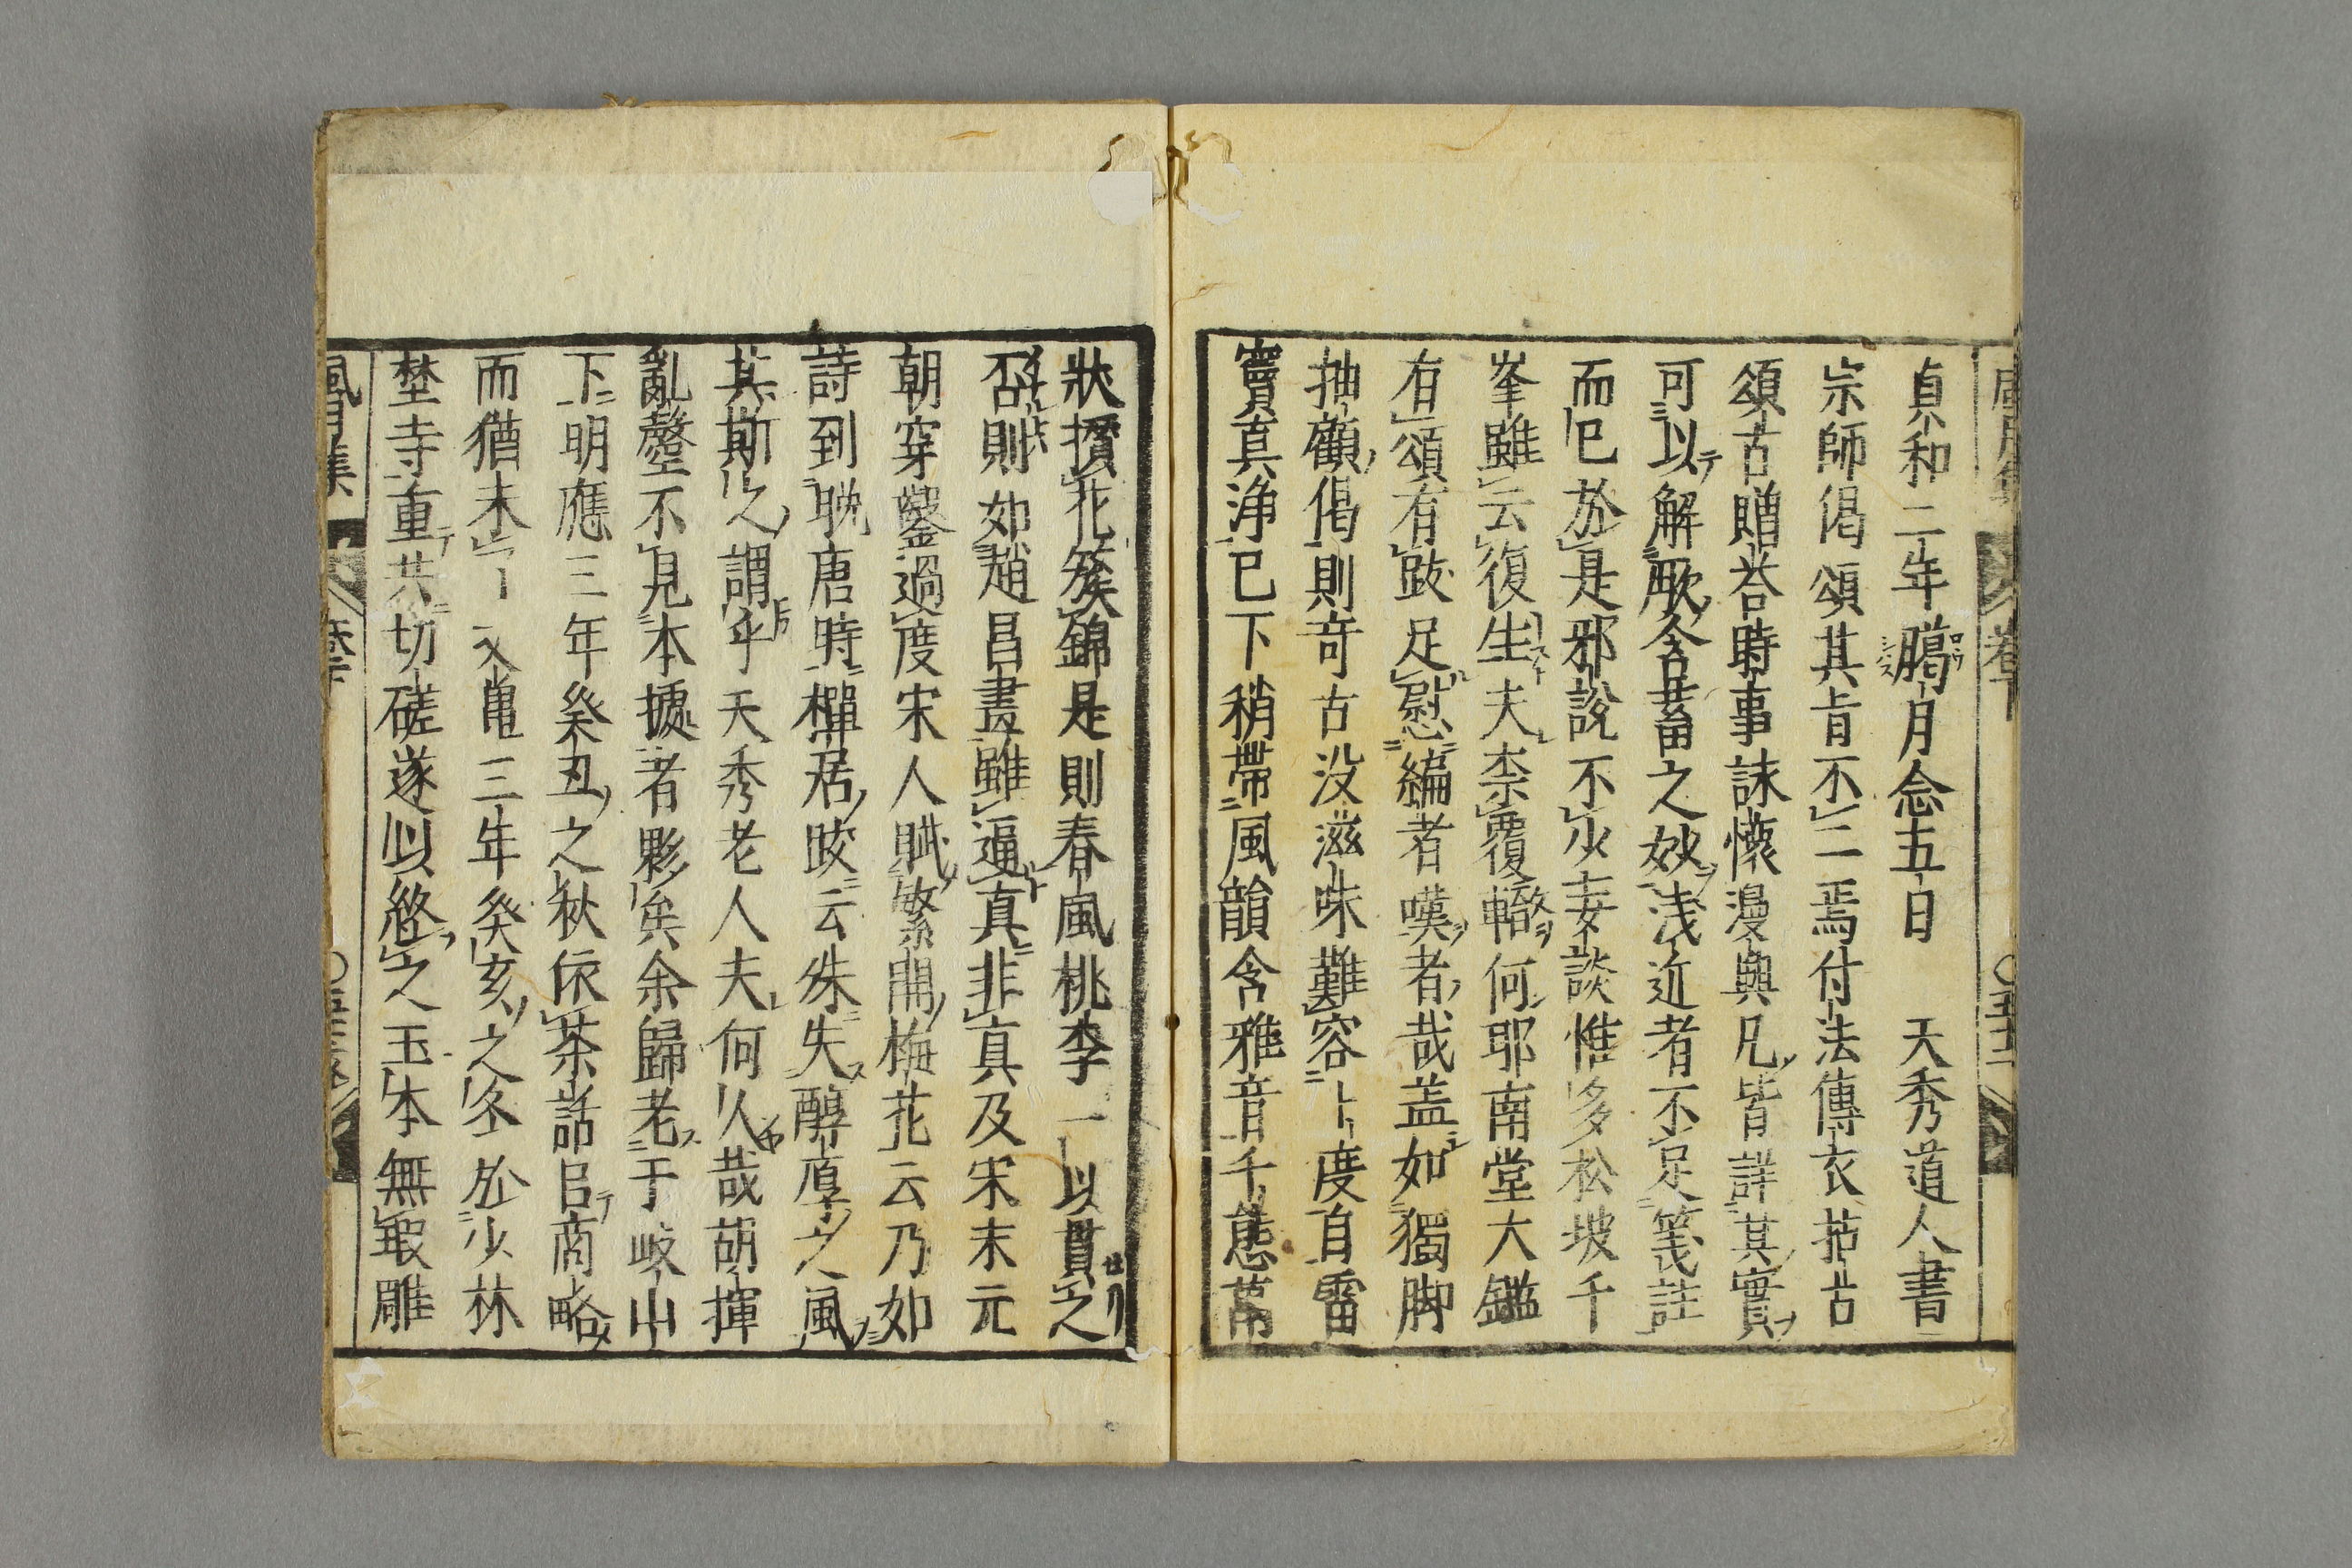 貞和二年臈月念五日　天秀道人書
宗師偈頌其旨不二焉付法傳衣拈古
頌古贈荅時事詠懷漫興凡皆詳其實
可以解歌含蓄之妙淺近者不足箋註
而已於是邪說不少妄談惟多松坡千
峯雖云復生夫柰覆轍何耶南堂大鑑
有頌有跋足慰編者嘆者哉盖如獨脚
抽顧偈則奇古没滋味難容卜度自雷
竇真浄已下稍帶風韻含雅音千態萬
狀攅花簇錦是則春風桃李一以貫之
否則如趙昌畫雖逼真非真及宋末元
朝穿鑿過度宋人賦繁開梅花云乃如
詩到晚唐時樿居跋云殊失醇厚之風
其斯之謂乎天秀老人夫何人哉胡揮
亂聲不見本㨿者夥矣余歸老于岐山
下明應三年癸丑之秋依茶話㠯商略
而猶未了文亀三年癸亥之冬於少林
埜寺重共切磋遂以終之玉本無瑕雕